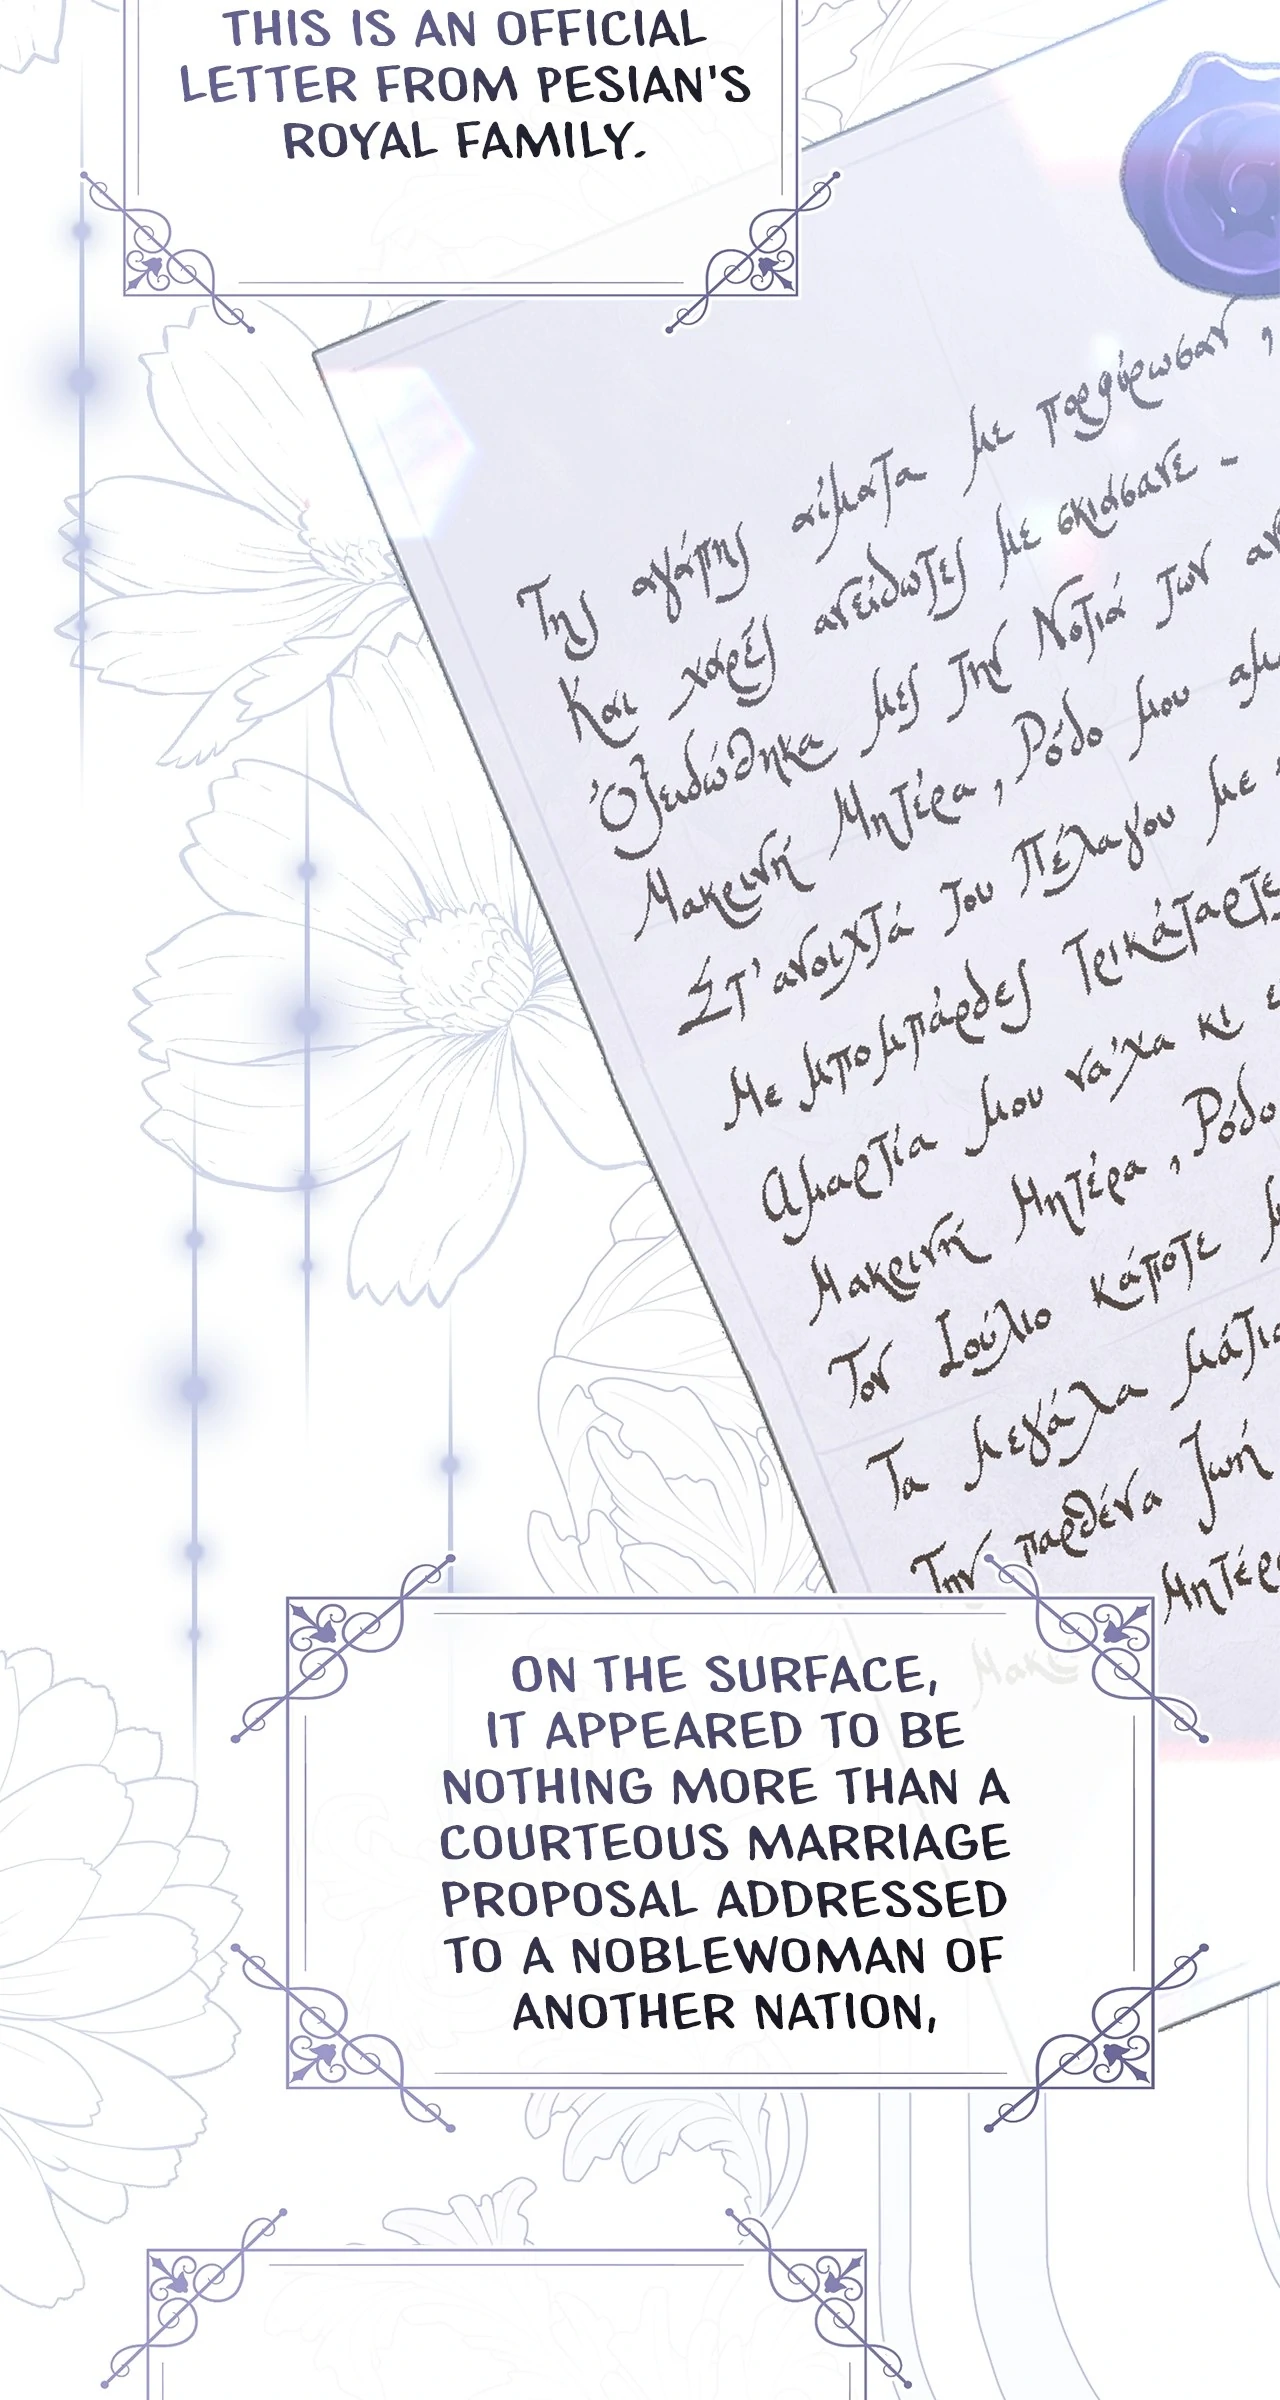 THIS IS AN OFFICIAL
LETTER FROM PESIAN'S
ROYAL FAMILY.
Της αγάπης αίματα με πορφύρωσαν,
Και χαρές ανείδωτες με σκιάσανε -
Οξειδώθηκα μες την Νοτιά των
Μακρινή Μητέρα, Ρόδο μου
Στ' ανοιχτά του Πέλαγου με
Με μπομπάρδες τρικάταρτες
Αμαρτία μου νά'χα κι
Μακρινή Μητέρα, Ρόδο
Τον Ιούλιο κάποτε
Τα μεγάλα μάτια
Την παρθένα ζωή
Μητέρα
ON THE SURFACE,
IT APPEARED TO BE
NOTHING MORE THAN A
COURTEOUS MARRIAGE
PROPOSAL ADDRESSED
TO A NOBLEWOMAN OF
ANOTHER NATION,